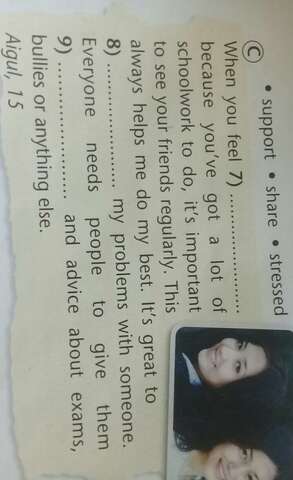 • support • share • stressed
C
When you feel 7) ........................
because you've got a lot of
schoolwork to do, it's important
to see your friends regularly. This
always helps me do my best. It's great to
8) ........................ my problems with someone.
Everyone needs people to give them
9) ........................ and advice about exams,
bullies or anything else.
Aigul, 15